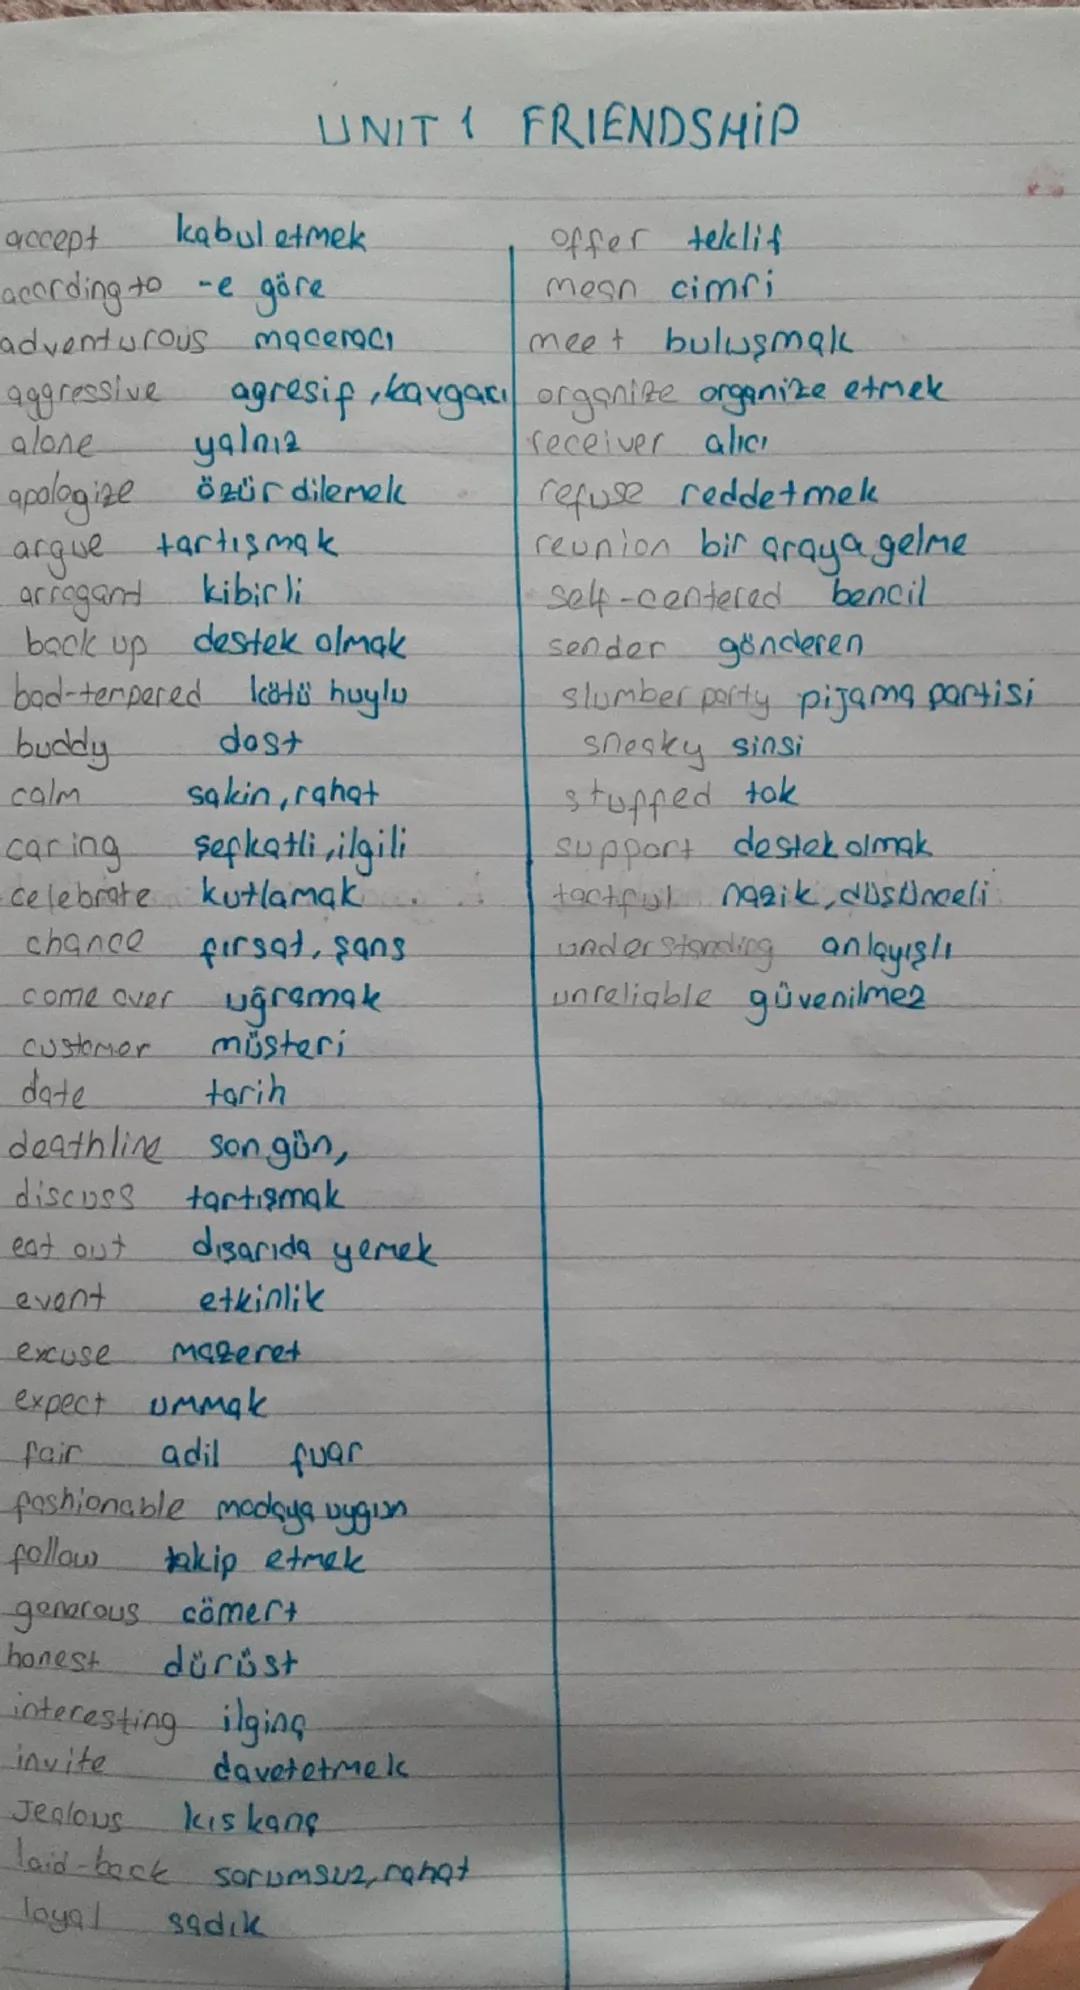 UNIT 1 FRIENDSHİP
accept kabul etmek
acording to -e göre
adventurous maceracı
aggressive agresif, kavgacı
alone yalnız
apologize özür dilemek
argue tartışmak
arrogant kibirli
back up destek olmak
bad-tempered kötü huylu
buddy dost
calm sakin, rahat
caring şefkatli, ilgili
celebrate kutlamak
chance fırsat, şans
come over uğramak
customer müşteri
date tarih
deathline son gün,
discuss tartışmak
eat out dışarıda yemek
event etkinlik
excuse mazeret
expect ummak
fair adil fuar
fashionable modaya uygun
follow takip etmek
generous cömert
honest dürüst
interesting ilginç
invite davet etmek
Jealous kıskanç
laid-back sorumsuz, rahat
loyal sadık
offer teklif
mean cimri
meet buluşmak
organize organize etmek
receiver alıcı
refuse reddetmek
reunion bir araya gelme
self-centered bencil
sender gönderen
slumber party pijama partisi
sneaky sinsi
stuffed tok
support destek olmak
tactful nazik, düşünceli
understanding anlayışlı
unreliable güvenilmez